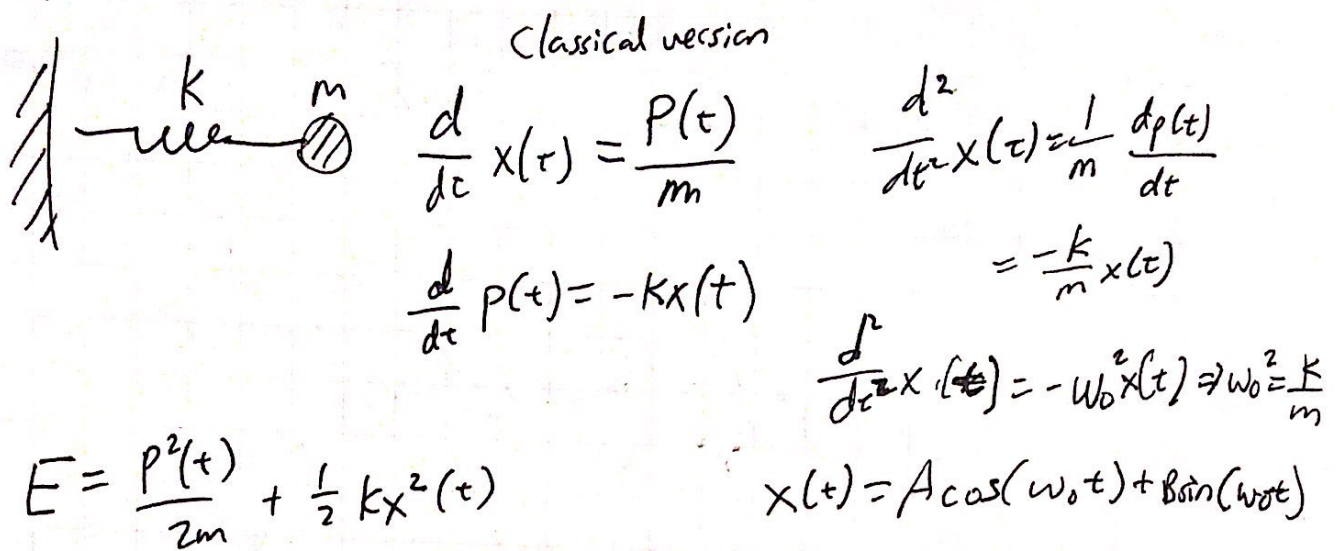 Classical version
k m
d/dt x(t) = P(t)/m
d²/dt² x(t) = 1/m dp(t)/dt
= -k/m x(t)
d/dt p(t) = -kx(t)
d²/dt² x(t) = -ω₀² x(t) ⇒ ω₀² = k/m
E = P²(t)/2m + ½ kx²(t)
x(t) = A cos(ω₀t) + B sin(ω₀t)